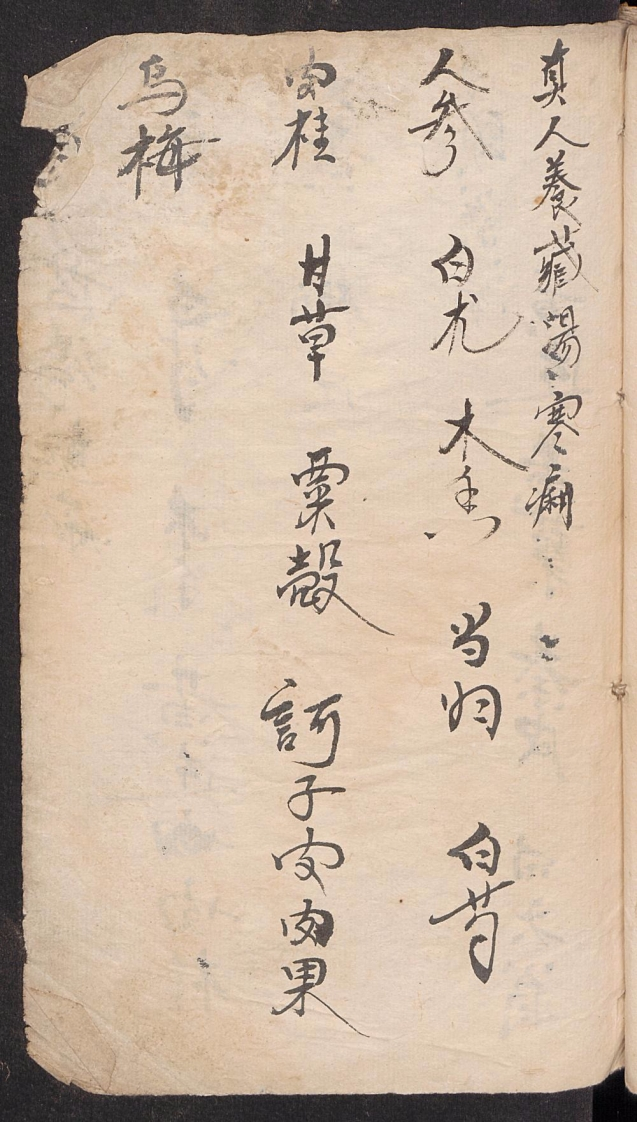 真人养藏湯寒痢
人参 白朮 木香 当归 白芍
肉桂 甘草 粟殼 訶子肉 肉果
烏梅